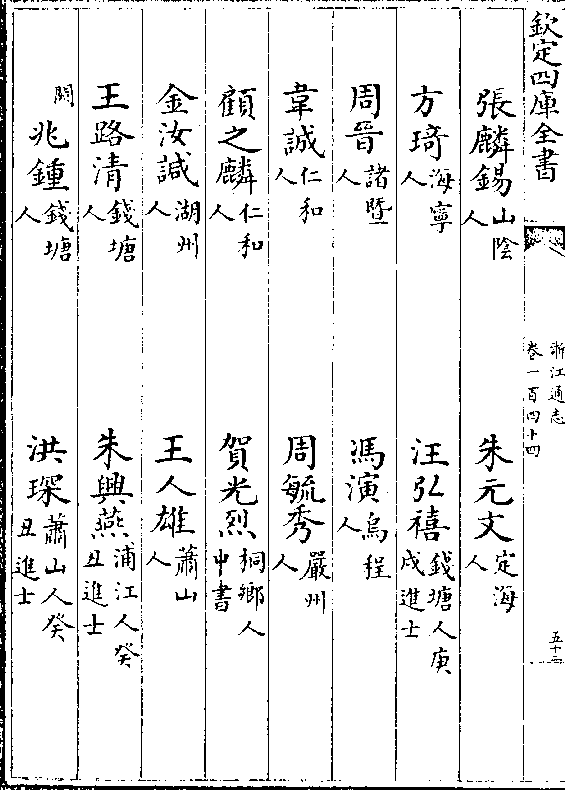 欽定四庫全書
浙江通志
卷一百四十四
張麟錫山陰人 朱元文定海人
方琦海寧人 汪弘禧錢塘人庚戌進士
周晉諸暨人 馮演烏程人
韋誠仁和人 周毓秀嚴州人
顧之麟仁和人 賀光烈桐鄉人中書
金汝諴湖州人 王人雄蕭山人
王路清錢塘人 朱興燕浦江人癸丑進士
闗兆鍾錢塘人 洪琛蕭山人癸丑進士